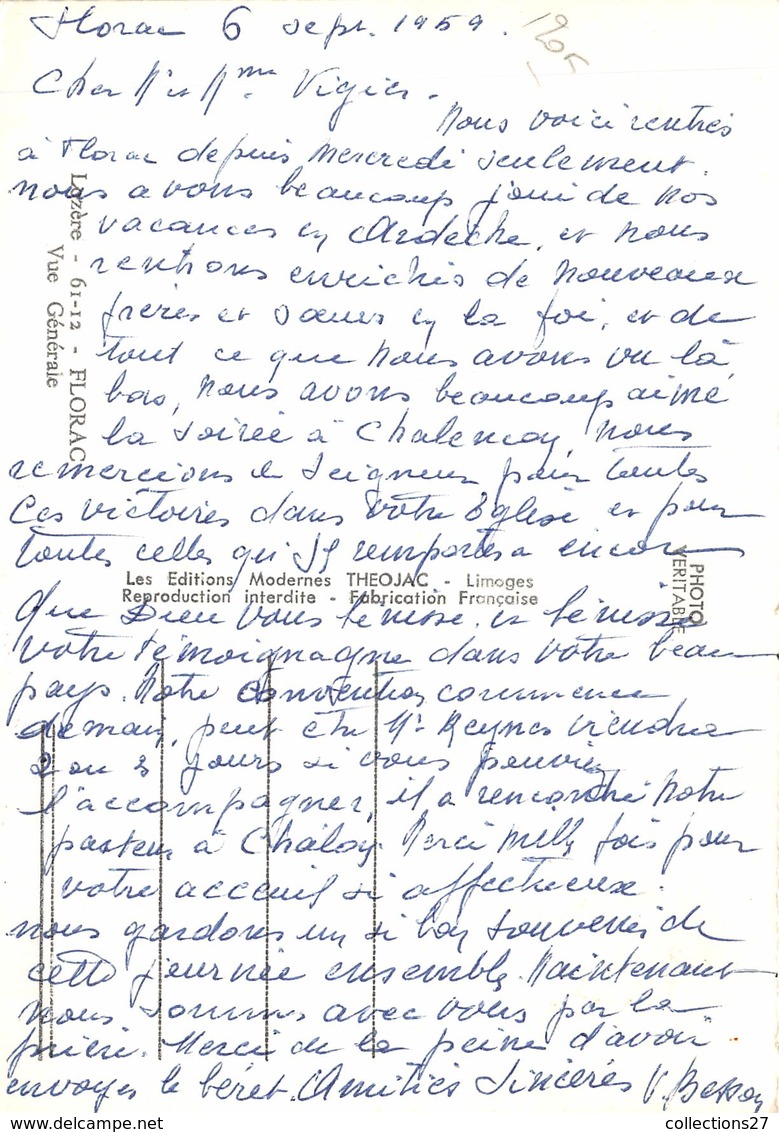 Florac 6 sept. 1959.
1205
Cher Mr et Mme Vigier.
Nous voici rentrés
à Florac depuis Mercredi seulement.
nous avons beaucoup joui de nos
vacances en Ardèche, et nous
rentrons enrichis de nouveaux
frères et sœurs en la foi, et de
tout ce que nous avons vu là
bas, nous avons beaucoup aimé
la soirée à Chalencon, nous
remercions le Seigneur pour toutes
ces victoires dans votre Eglise et pour
toutes celles qu'Il remportera encore
Que Dieu vous bénisse. et bénisse
votre témoignage dans votre beau
pays. Notre convention commence
demain, peut etre Mr Reynes viendra
2 ou 3 jours si vous pouviez
l'accompagner, il a rencontré notre
pasteur à Chalon. Merci mille fois pour
votre acceuil si affectueux.
nous gardons un si bon souvenir de
cette journée ensemble. Maintenant
nous sommes avec vous par la
prière. Merci de la peine d'avoir
envoyer le béret. Amitiés Sincères V. Besson
Lozère - 61-12 - FLORAC
Vue Générale
Les Editions Modernes THEOJAC - Limoges
Reproduction interdite - Fabrication Française
PHOTO
VERITABLE
collections27